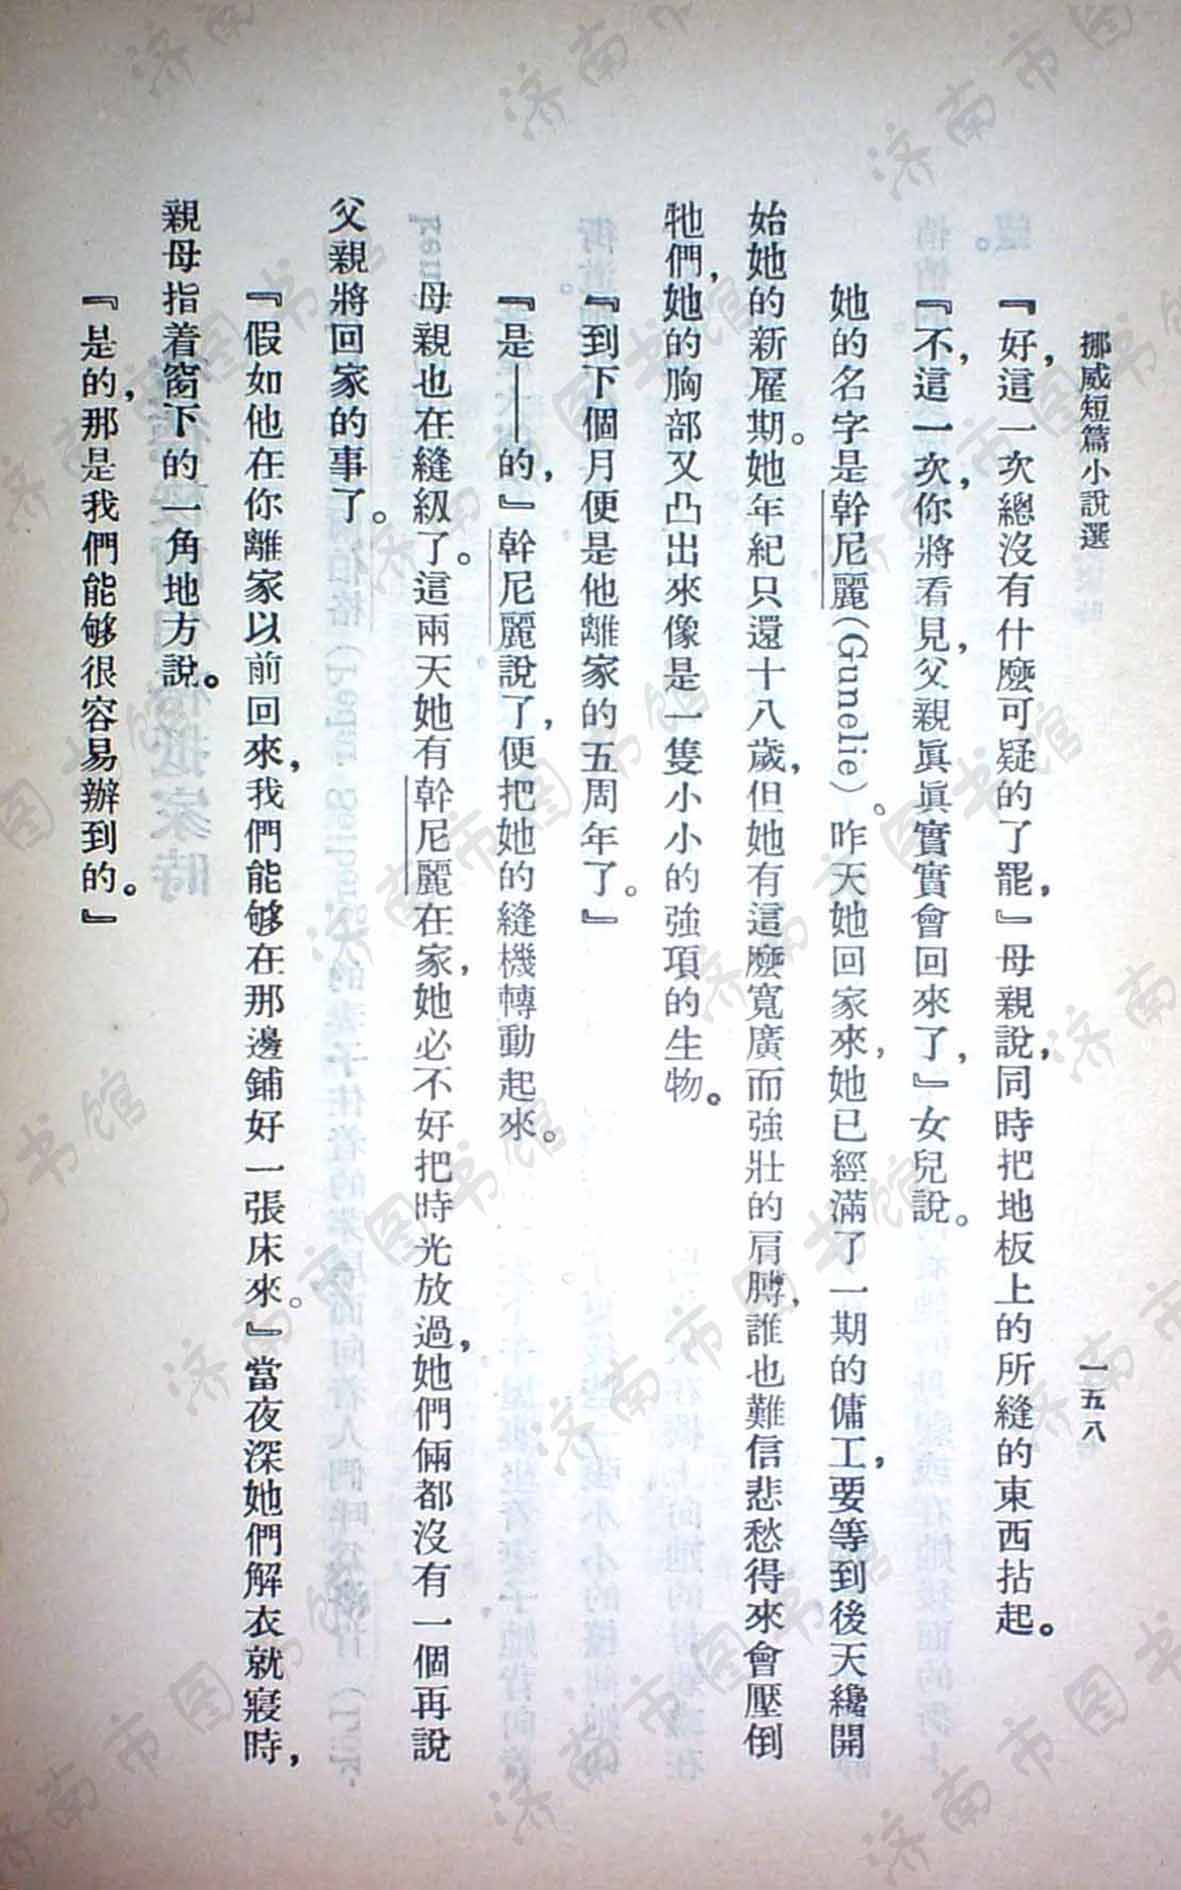 挪威短篇小說選
一五八
『好，這一次總沒有什麼可疑的了罷，』母親說，同時把地板上的所縫的東西拈起。
『不，這一次，你將看見，父親眞眞實實會回來了，』女兒說。
她的名字是幹尼麗（Gunelie）。昨天她回家來，她已經滿了一期的傭工，要等到後天纔開
始她的新雇期。她年紀只還十八歲，但她有這麼寬廣而強壯的肩膊，誰也難信悲愁得來會壓倒
牠們，她的胸部又凸出來像是一隻小小的強項的生物。
『到下個月便是他離家的五周年了。』
『是——的，』幹尼麗說了，便把她的縫機轉動起來。
母親也在縫級了。這兩天她有幹尼麗在家，她必不好把時光放過，她們倆都沒有一個再說
父親將回家的事了。
『假如他在你離家以前回來，我們能够在那邊鋪好一張床來。』當夜深她們解衣就寢時，
親母指着窗下的一角地方說。
『是的，那是我們能够很容易辦到的。』
济南市图书馆